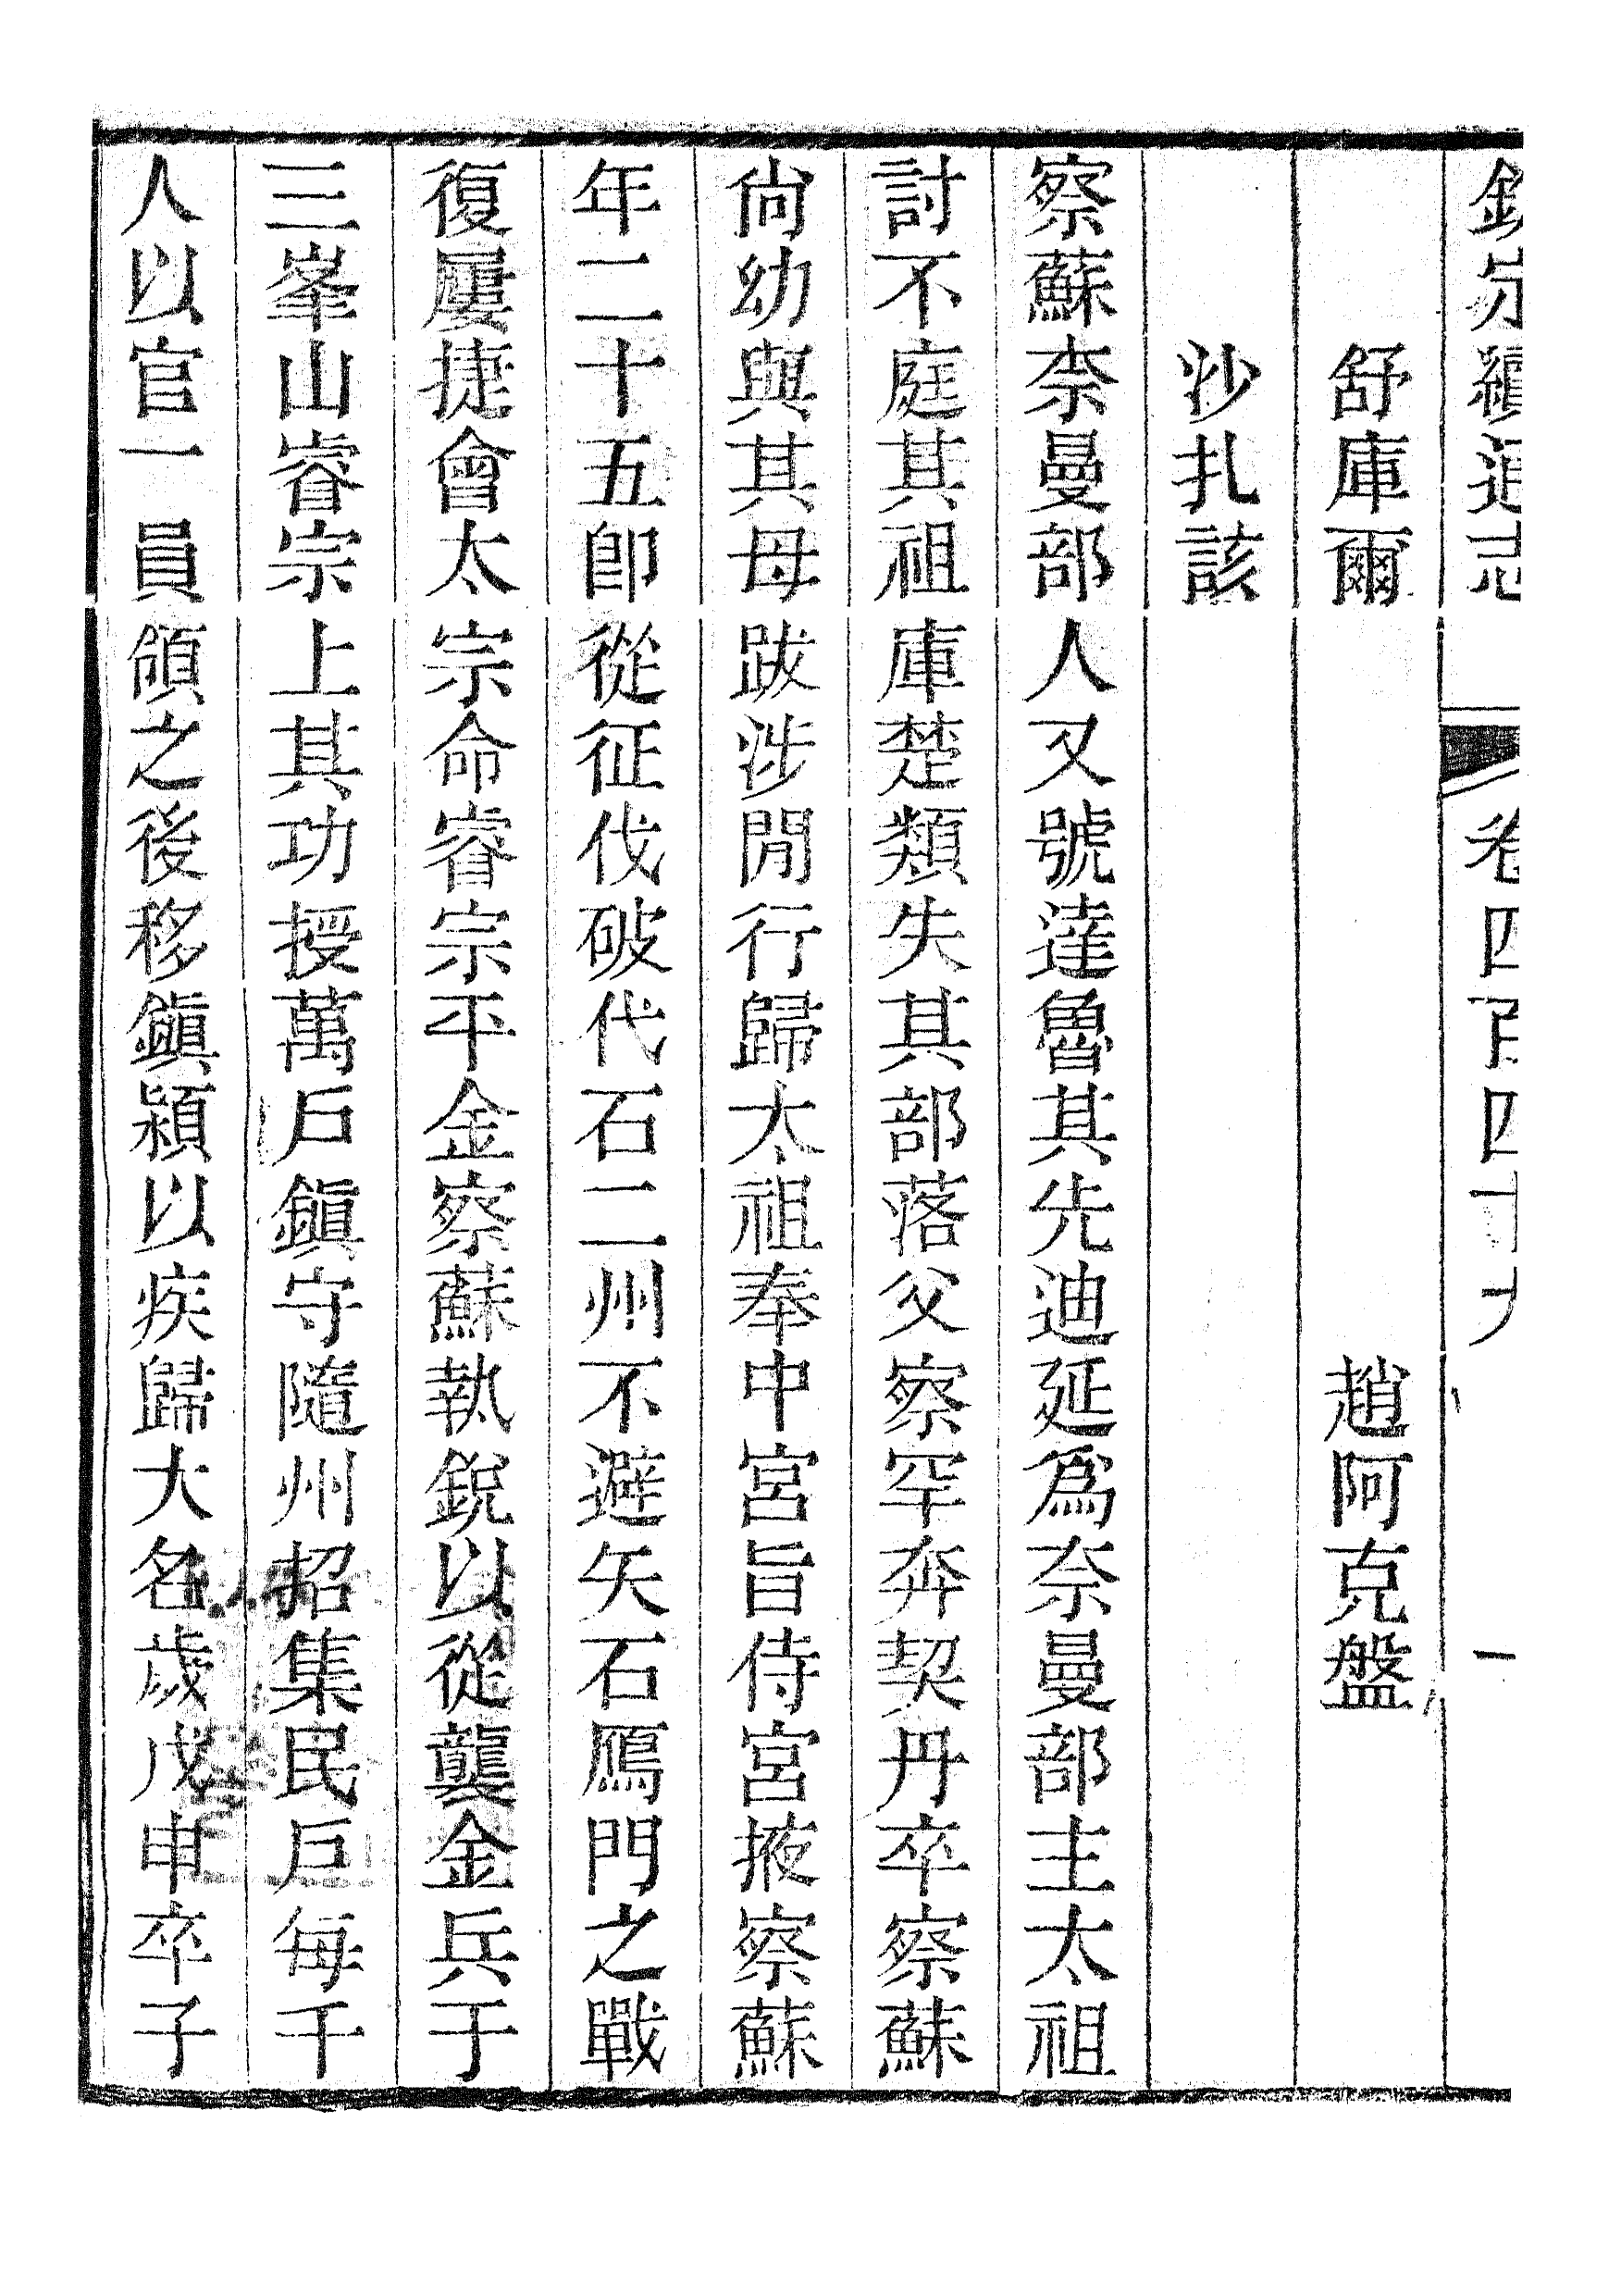 欽定續通志 卷四百四十九 一
舒庫爾 趙阿克盤
沙扎該
察蘇柰曼部人又號達魯其先迪延爲奈曼部主太祖
討不庭其祖庫楚類失其部落父察罕奔契丹卒察蘇
尙幼與其母跋涉閒行歸太祖奉中宮旨侍宮掖察蘇
年二十五卽從征伐破代石二州不避矢石鴈門之戰
復屢捷會太宗命睿宗平金察蘇執銳以從龔金兵于
三峯山睿宗上其功授萬戶鎭守隨州招集民戶每千
人以官一員領之後移鎭潁以疾歸大名歲戊申卒子